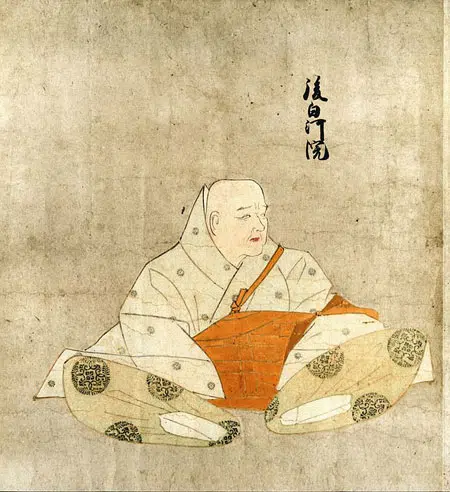 後白河院